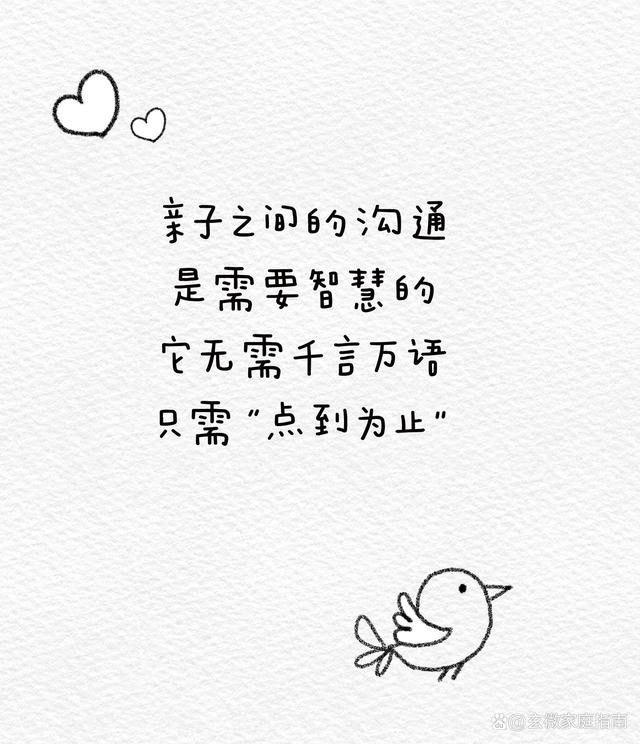 亲子之间的沟通
是需要智慧的
它无需千言万语
只需"点到为止"
@玄微家庭指南